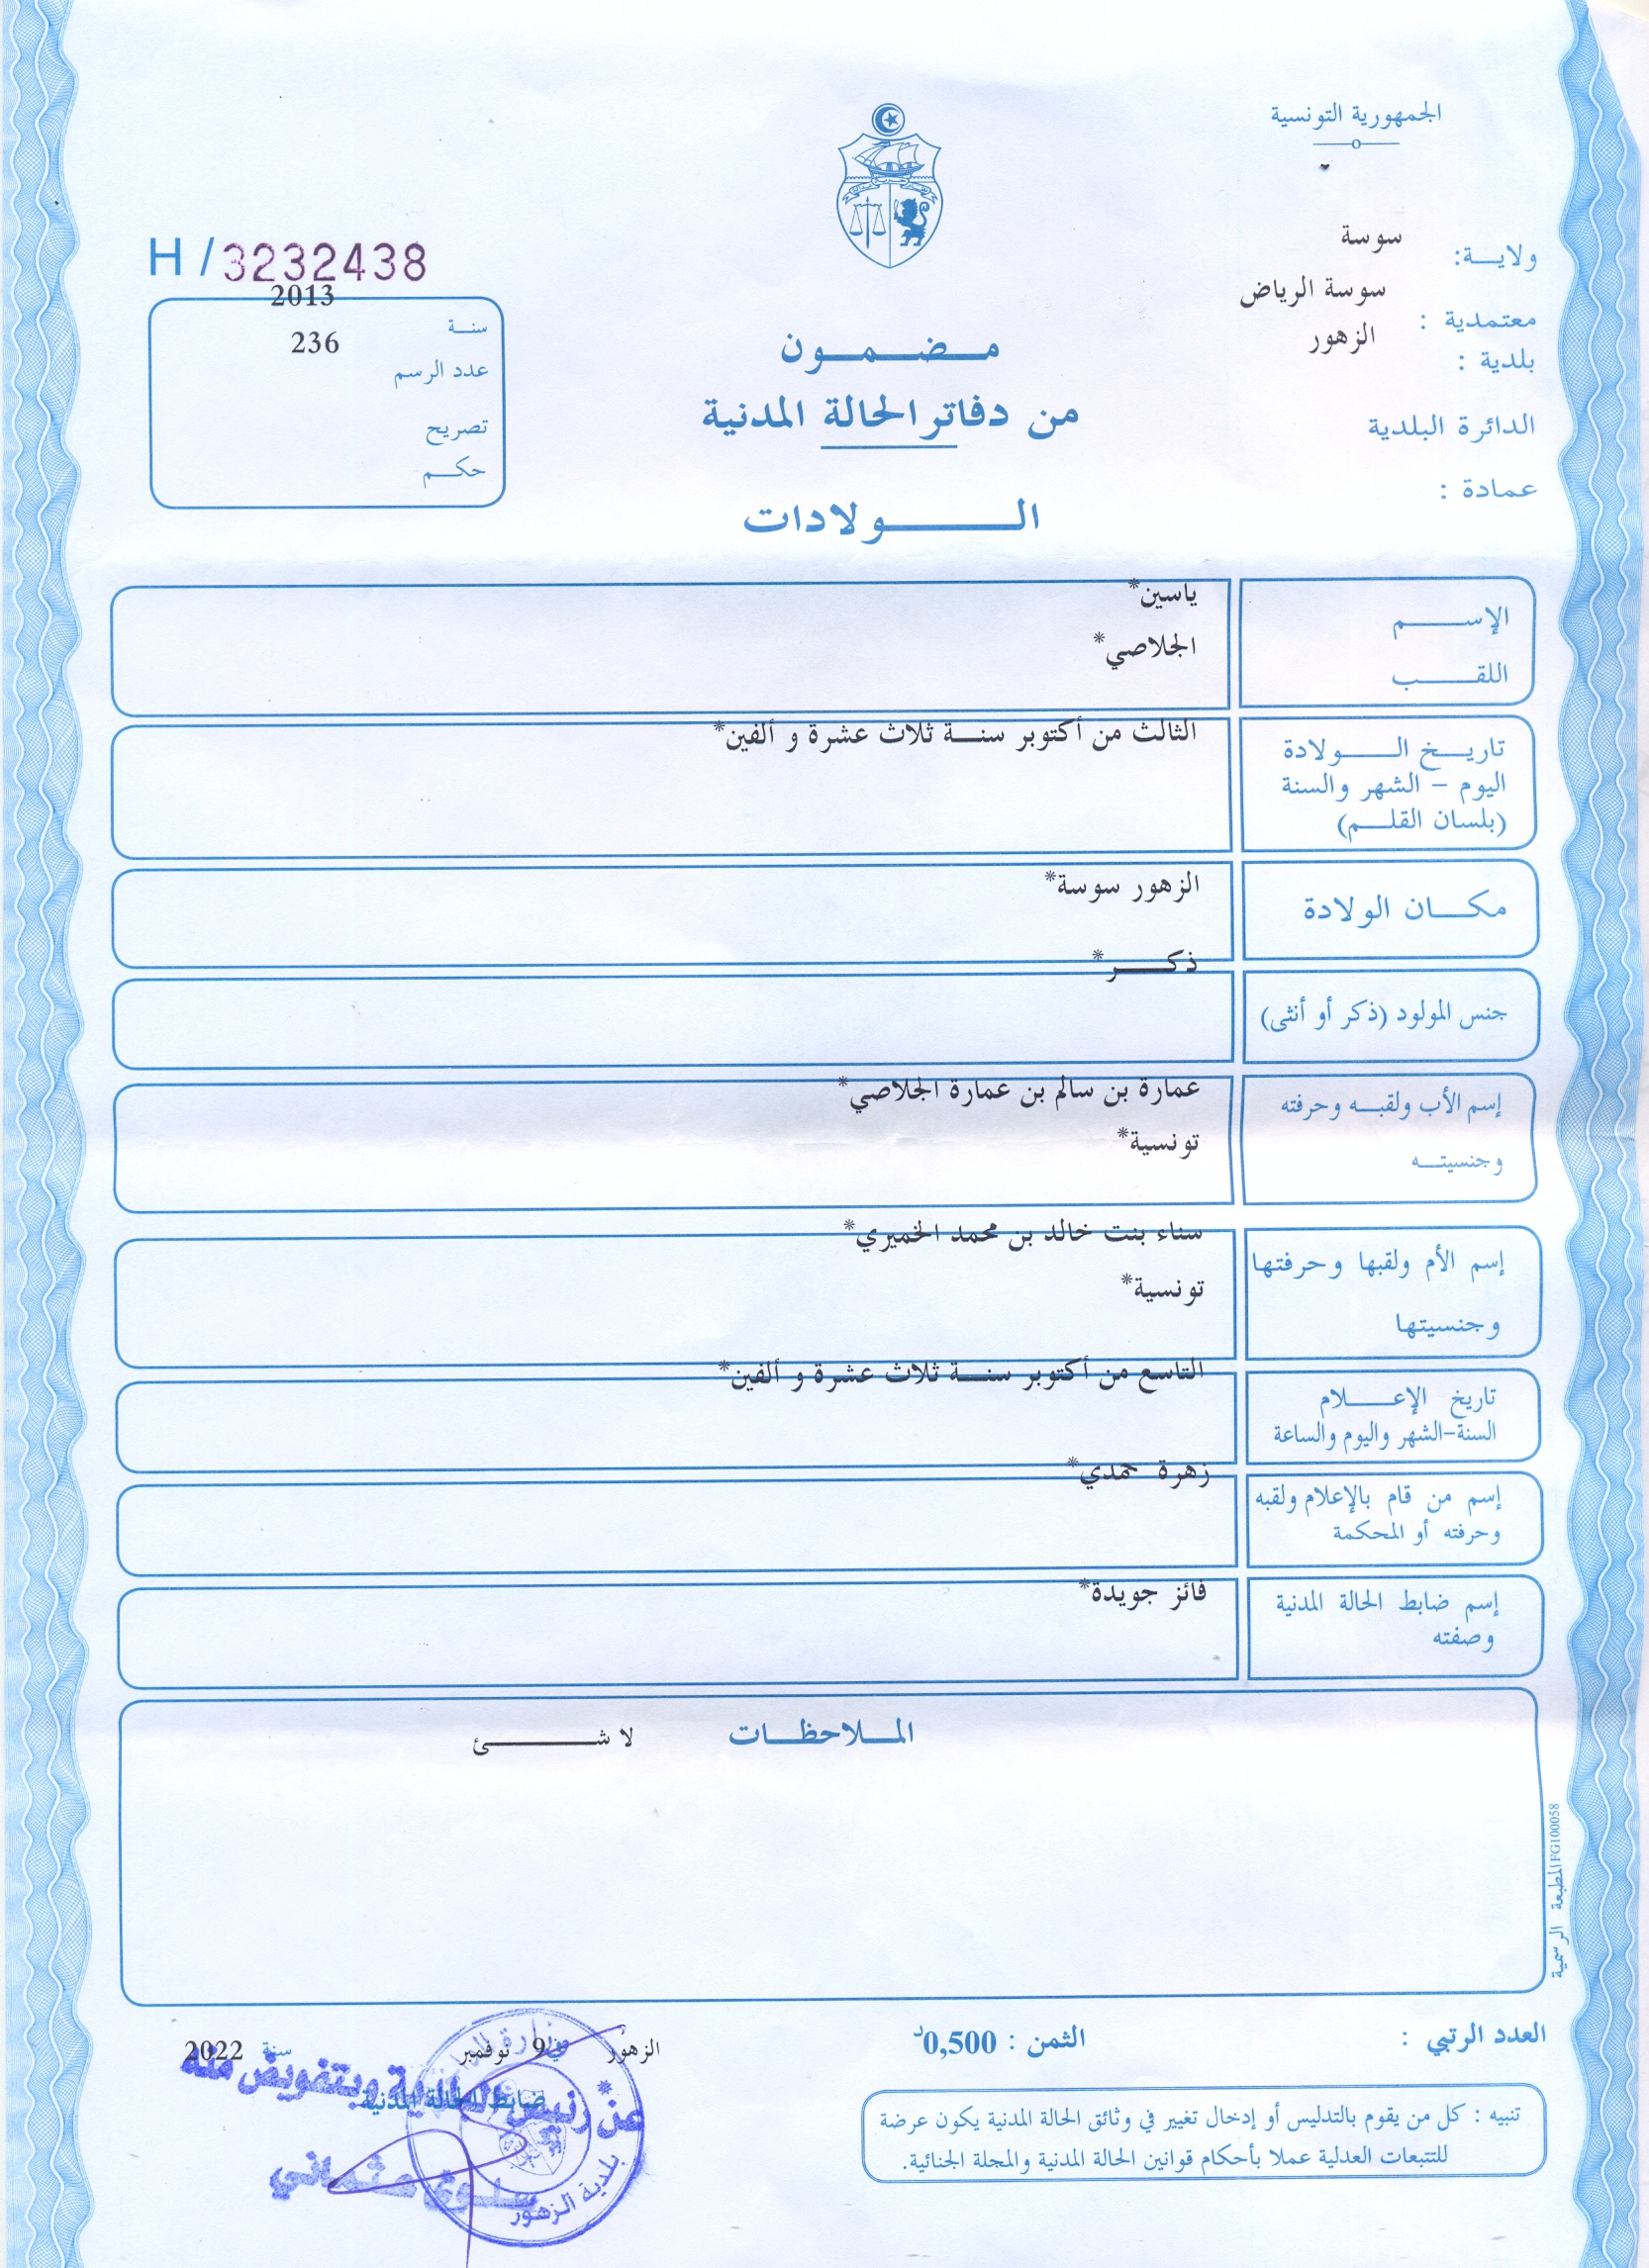 الجمهورية التونسية
ولايـــة: سوسة
معتمدية : سوسة الرياض
بلدية : الزهور
الدائرة البلدية
عمادة :
H / 3232438
سنــة 2013
عدد الرسم 236
تصريح
حكــم
مـــضـــمـــون
من دفاتر الحالة المدنية
الـــــولادات
الإســــم ياسين*
اللقــــب الجلاصي*
تاريــخ الـــــولادة
اليوم – الشهر والسنة
(بلسان القلــم)
الثالث من أكتوبر سنـــة ثلاث عشرة و ألفين*
مكـــان الولادة الزهور سوسة*
جنس المولود (ذكر أو أنثى) ذكــــر*
إسم الأب ولقبــه وحرفته عمارة بن سالم بن عمارة الجلاصي*
وجنسيتــه تونسية*
إسم الأم ولقبها وحرفتها سناء بنت خالد بن محمد الخميري*
وجنسيتها تونسية*
تاريخ الإعـــــلام
السنة-الشهر واليوم والساعة
التاسع من أكتوبر سنـــة ثلاث عشرة و ألفين*
إسم من قام بالإعلام ولقبه
وحرفته أو المحكمة
زهرة حمدي*
إسم ضابط الحالة المدنية
وصفته
فائز جويدة*
المـــلاحظـــات لا شـــــــئ
المطبعة الرسمية FG100058
العدد الرتبي :
الثمن : 0,500د
الزهور في 9 نوفمبر سنة 2022
ضابط الحالة المدنية
عن رئيس البلدية وبتفويض منه
سلوى عثماني
بلدية الزهور
تنبيه : كل من يقوم بالتدليس أو إدخال تغيير في وثائق الحالة المدنية يكون عرضة
للتتبعات العدلية عملا بأحكام قوانين الحالة المدنية والمجلة الجنائية.